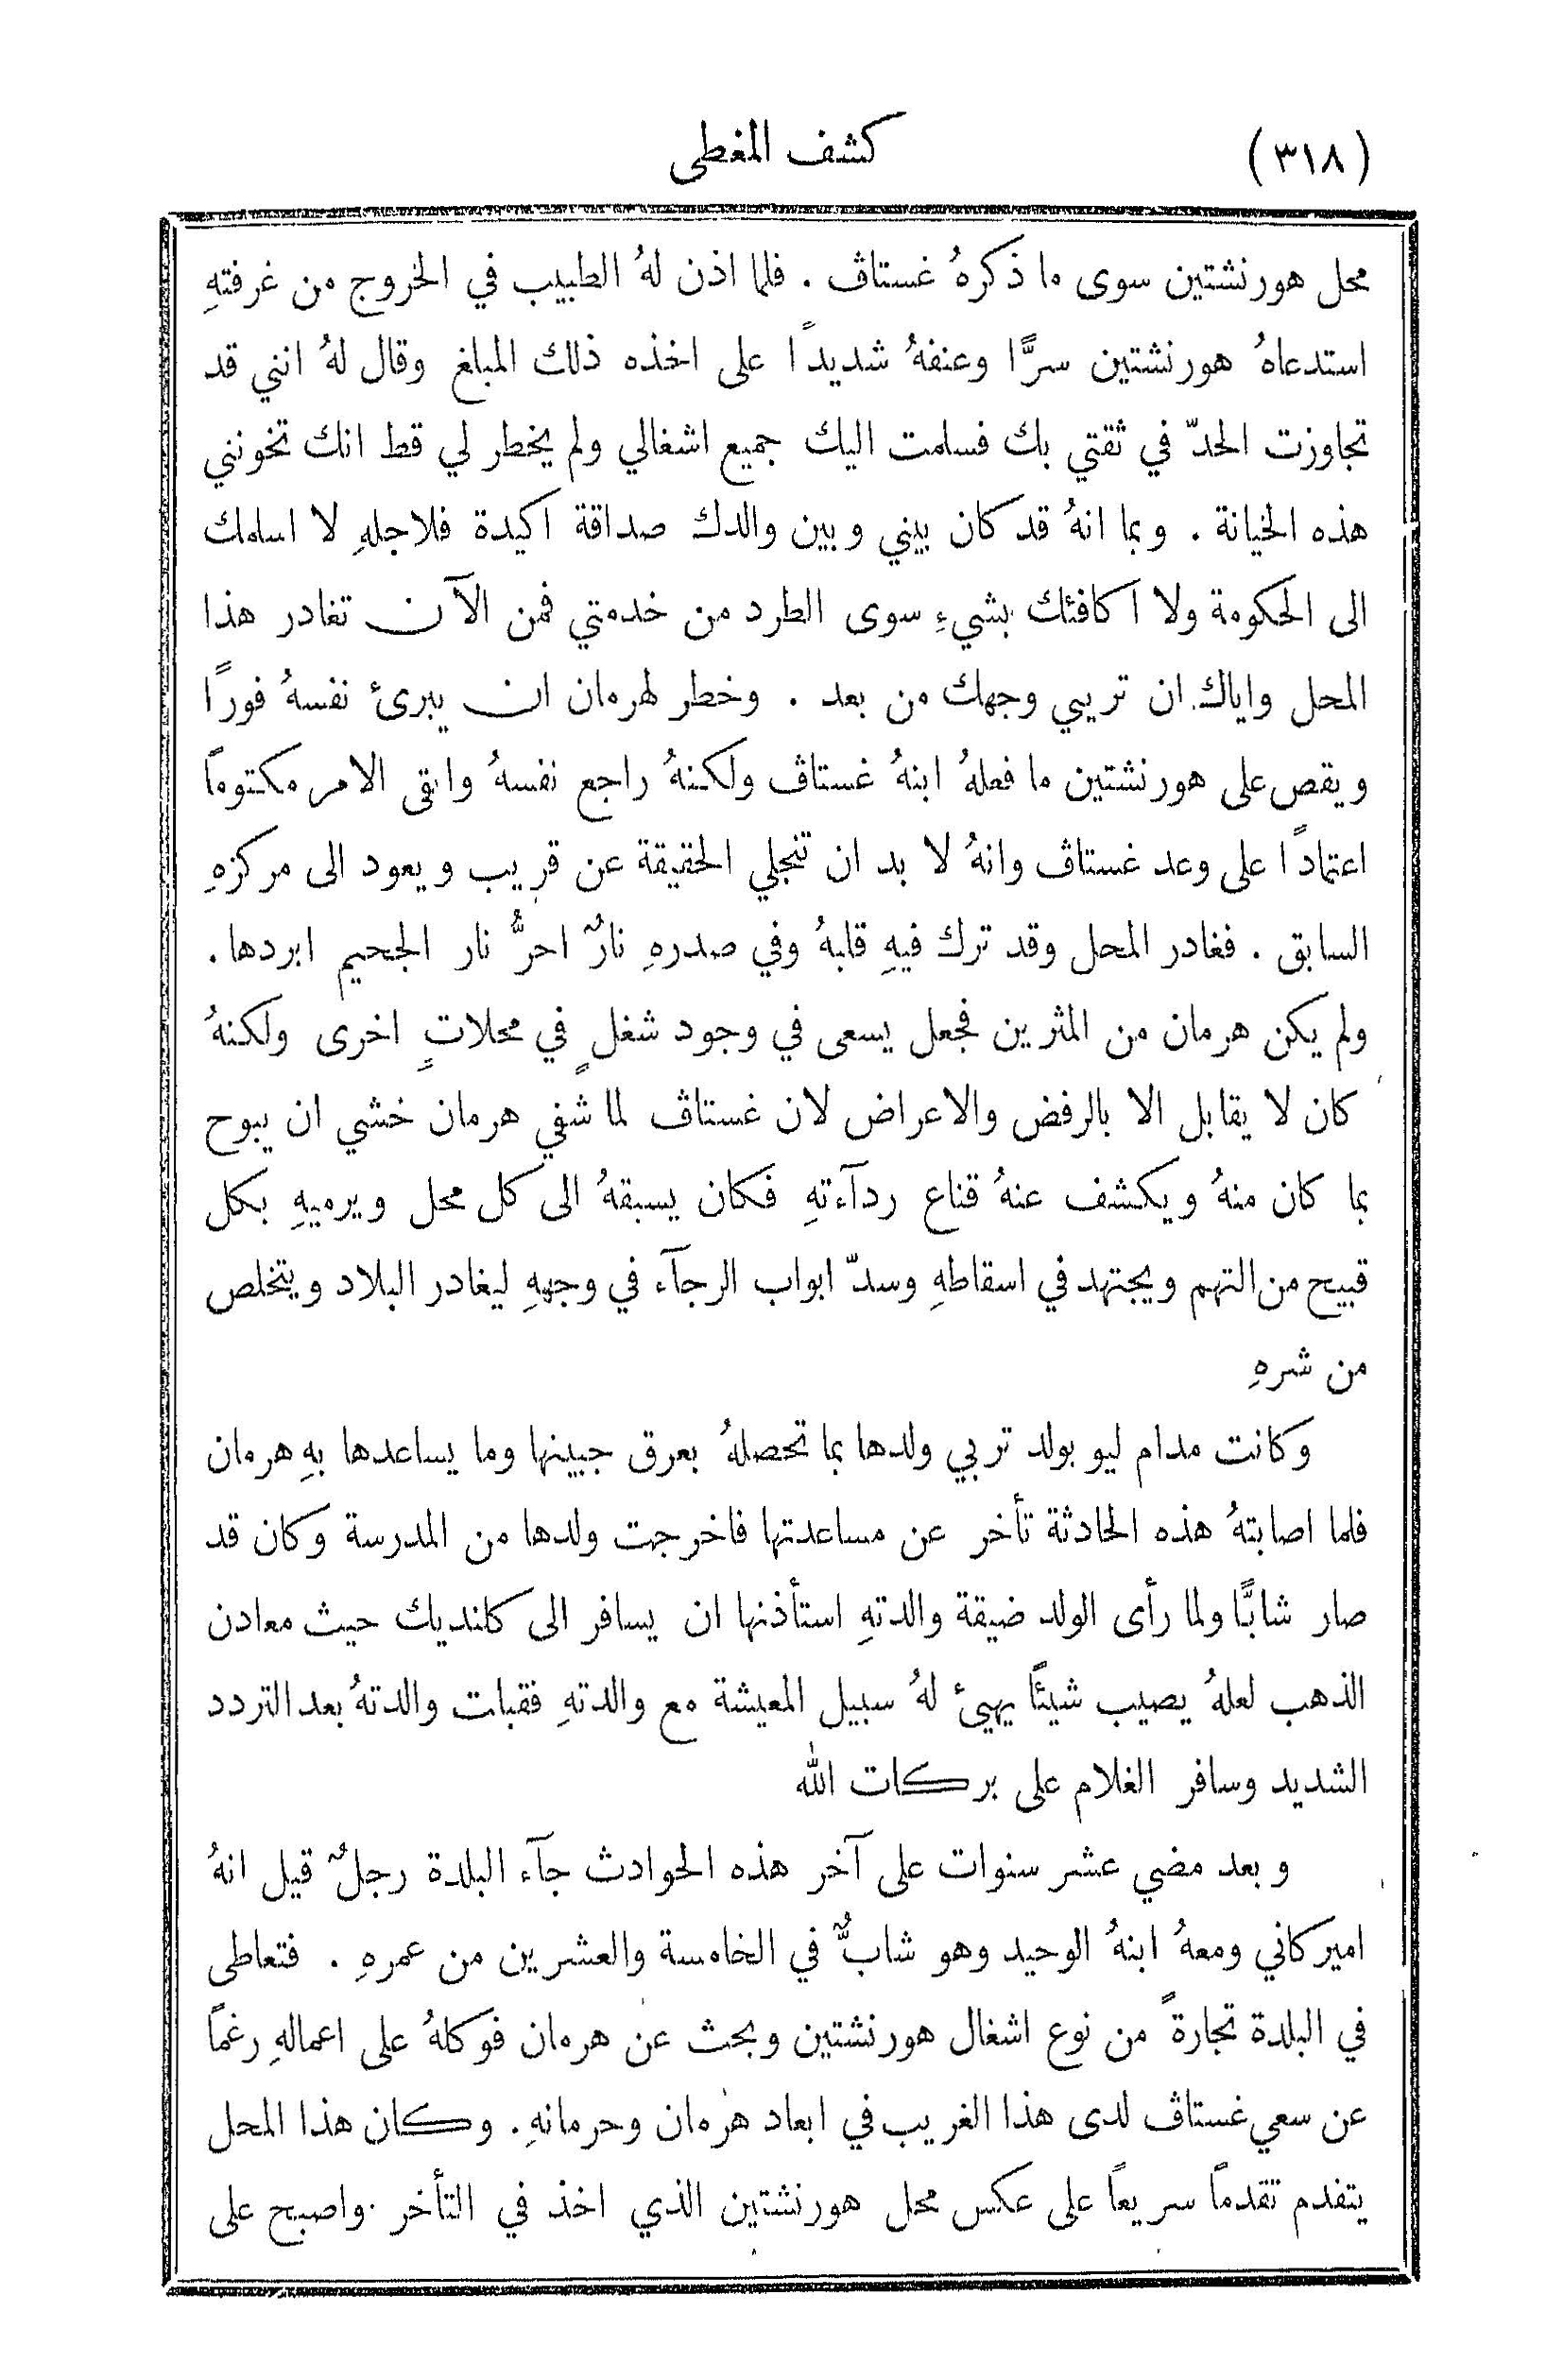 (٣١٨) كشف المغطى
محل هورنشتين سوى ما ذكرهُ غستاڤ . فلما اذن لهُ الطبيب في الخروج من غرفتهِ
استدعاهُ هورنشتين سرًّا وعنفهُ شديدًا على اخذه ذلك المبلغ وقال لهُ انني قد
تجاوزت الحدّ في ثقتي بك فسلمت اليك جميع اشغالي ولم يخطر لي قط انك تخونني
هذه الخيانة . وبما انهُ قد كان بيني وبين والدك صداقة اكيدة فلاجلهِ لا اسلمك
الى الحكومة ولا اكافئك بشيءٍ سوى الطرد من خدمتي فمن الآن تغادر هذا
المحل واياك ان تريني وجهك من بعد . وخطر لهرمان ان يبرئ نفسهُ فورًا
ويقص على هورنشتين ما فعلهُ ابنهُ غستاڤ ولكنهُ راجع نفسهُ وابقى الامر مكتوماً
اعتمادًا على وعد غستاڤ وانهُ لا بد ان تنجلي الحقيقة عن قريب ويعود الى مركزهِ
السابق . فغادر المحل وقد ترك فيهِ قلبهُ وفي صدرهِ نارٌ احرُّ نار الجحيم ابردها .
ولم يكن هرمان من المثرين فجعل يسعى في وجود شغلٍ في محلاتٍ اخرى ولكنهُ
كان لا يقابل الا بالرفض والاعراض لان غستاڤ لما شفي هرمان خشي ان يبوح
بما كان منهُ ويكشف عنهُ قناع ردآءتهِ فكان يسبقهُ الى كل محل ويرميهِ بكل
قبيح من التهم ويجتهد في اسقاطهِ وسدّ ابواب الرجآء في وجههِ ليغادر البلاد ويتخلص
من شرهِ
وكانت مدام ليو بولد تربي ولدها بما تحصلهُ بعرق جبينها وما يساعدها بهِ هرمان
فلما اصابتهُ هذه الحادثة تأخر عن مساعدتها فاخرجت ولدها من المدرسة وكان قد
صار شابًّا ولما رأى الولد ضيقة والدتهِ استأذنها ان يسافر الى كلنديك حيث معادن
الذهب لعلهُ يصيب شيئًا يهيئ لهُ سبيل المعيشة مع والدتهِ فقبلت والدتهُ بعد التردد
الشديد وسافر الغلام على بركات الله
وبعد مضي عشر سنوات على آخر هذه الحوادث جآء البلدة رجلٌ قيل انهُ
اميركاني ومعهُ ابنهُ الوحيد وهو شابٌّ في الخامسة والعشرين من عمرهِ . فتعاطى
في البلدة تجارةً من نوع اشغال هورنشتين وبحث عن هرمان فوكلهُ على اعمالهِ رغماً
عن سعي غستاڤ لدى هذا الغريب في ابعاد هرمان وحرمانهِ . وكان هذا المحل
يتقدم تقدماً سريعاً على عكس محل هورنشتين الذي اخذ في التأخر واصبح على